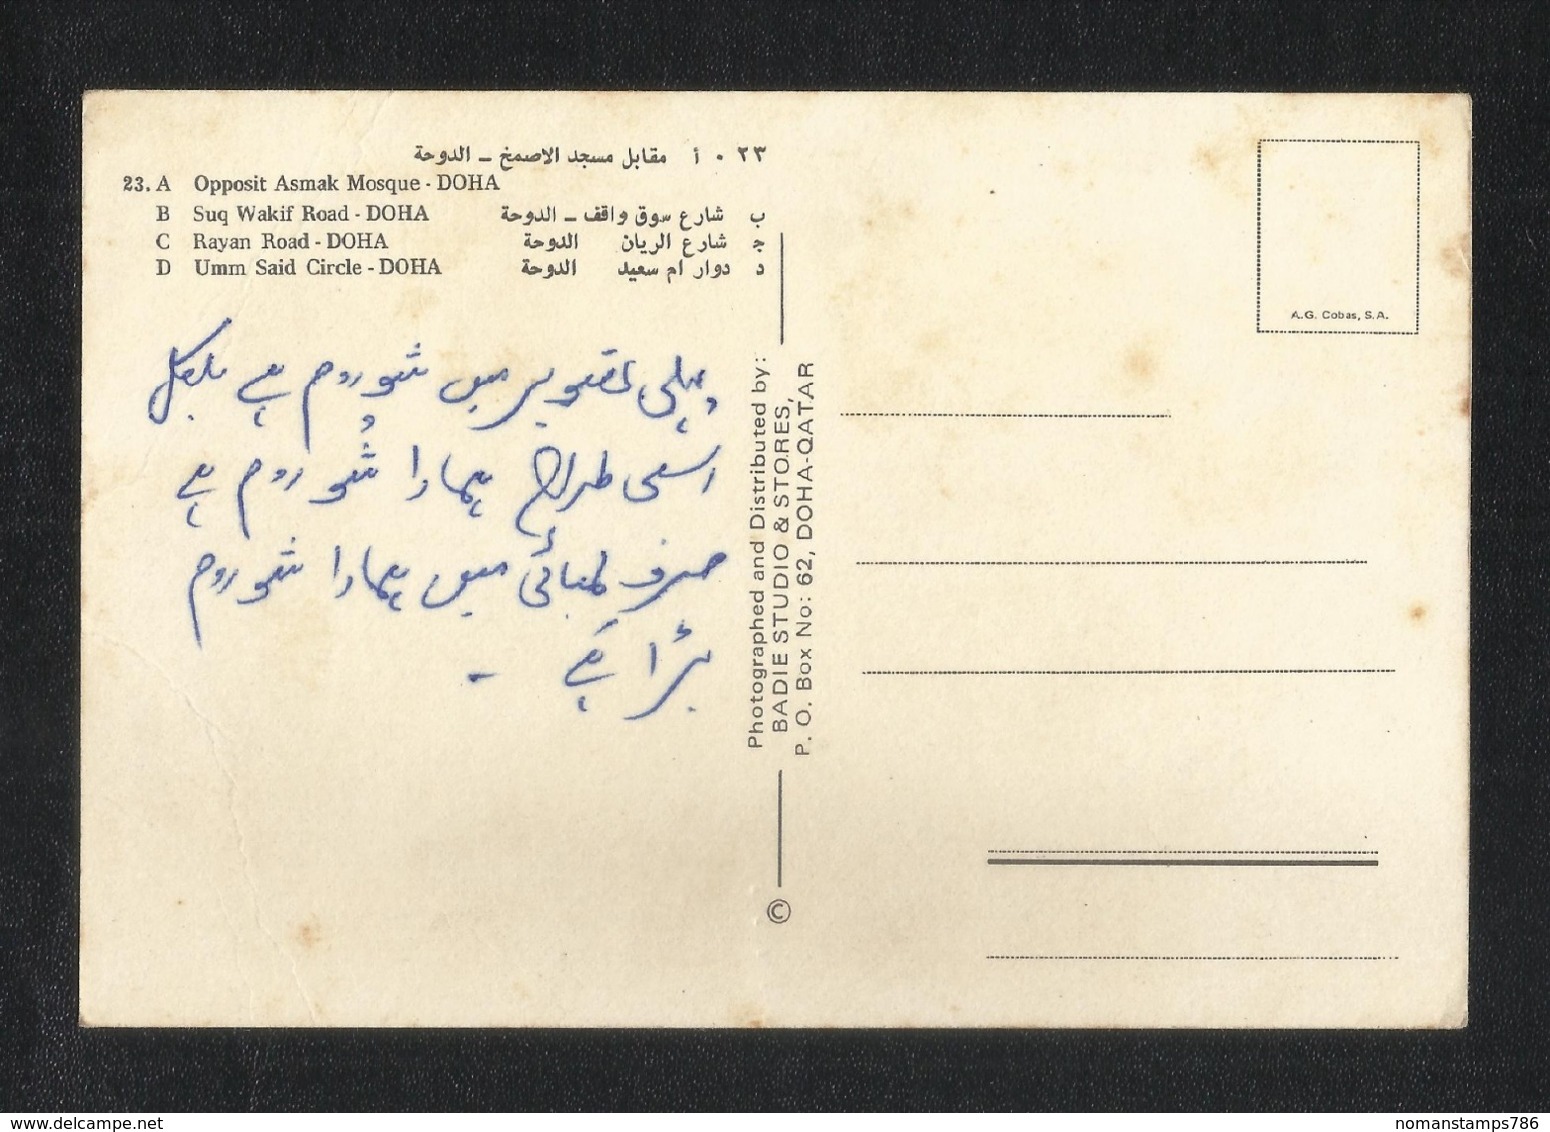 ٢٣ ٠ أ مقابل مسجد الاصمخ – الدوحة
23. A Opposit Asmak Mosque - DOHA
B Suq Wakif Road - DOHA ب شارع سوق واقف – الدوحة
C Rayan Road - DOHA ج شارع الريان الدوحة
D Umm Said Circle - DOHA د دوار ام سعيد الدوحة
پہلی تصویر میں شوروم ہے بلکل
اسی طراح ہمارا شوروم ہے
صرف لمبائی میں ہمارا شوروم
بڑا ہے -
Photographed and Distributed by:
BADIE STUDIO & STORES,
P. O. Box No: 62, DOHA-QATAR
©
A.G. Cobas, S.A.
nomanstamps786